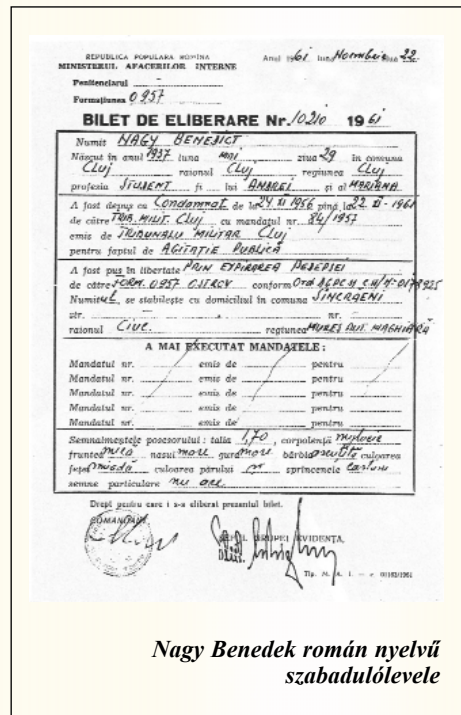 REPUBLICA POPULARA ROMÎNA Anul 1961 luna Noembrie ziua 22
MINISTERUL AFACERILOR INTERNE
Penitenciarul
Formațiunea 0957
BILET DE ELIBERARE Nr. 10210 1961
Numit NAGY BENEDICT
Născut în anul 1937 luna ziua 29 în comuna
Cluj raionul Cluj regiunea Cluj
profesia STUDENT fi lui ANDREI și al MARIANA
A fost depus ca Condamnat de la 24 XI 1956 pînă la 22 XI - 1961
de către TRIB. MILIT. Cluj cu mandatul nr. 84/1957
emis de TRIBUNALU MILITAR Cluj
pentru faptul de AGITAȚIE PUBLICĂ
A fost pus în libertate PRIN EXPIRAREA PEDEPSEI
de către FORM. 0957 conform
Numitul, se stabilește cu domiciliul în comuna SÎNCRAENI
str. nr.
raionul CIUC regiunea MUREȘ AUT. MAGHIARĂ
A MAI EXECUTAT MANDATELE:
Mandatul nr. emis de pentru
Mandatul nr. emis de pentru
Mandatul nr. emis de pentru
Mandatul nr. emis de pentru
Mandatul nr. emis de pentru
Semnalmentele posesorului: talia 1,70, corpolența mijlocie
fruntea mică nasul mare gura mare bărbia ascuțită culoarea
feței culoarea părului sprîncenele
semne particulare nu are
Drept pentru care i s-a eliberat prezentul bilet.
COMANDANT
ȘEFUL GRUPEI EVIDENȚA,
Tip. M. A. I. — c
Nagy Benedek román nyelvű
szabadulólevele